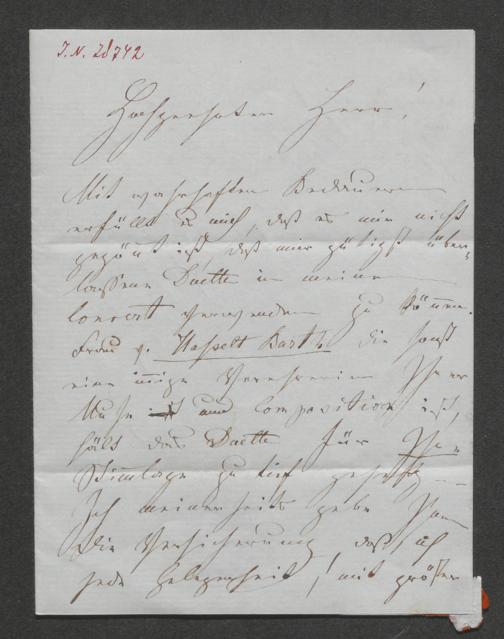 I.N. 28742
Hochgeehrter Herr!
Mit wahrhaften Bedauern
erfüllt es mich, daß es mir nicht
gegönnt ist, daß mir gütigst über-
lassene Duette in meinem
Concert verwenden zu können.
Frau v. Hasselt Barth die sonst
eine innige Verehrerin Ihrer
Muse und Composition ist,
hält das Duette für Ihre
Stimmlage zu tief gesetzt
Ich meinerseits gebe Ihnen
die Versicherung daß ich
jede Gelegenheit, mit größter